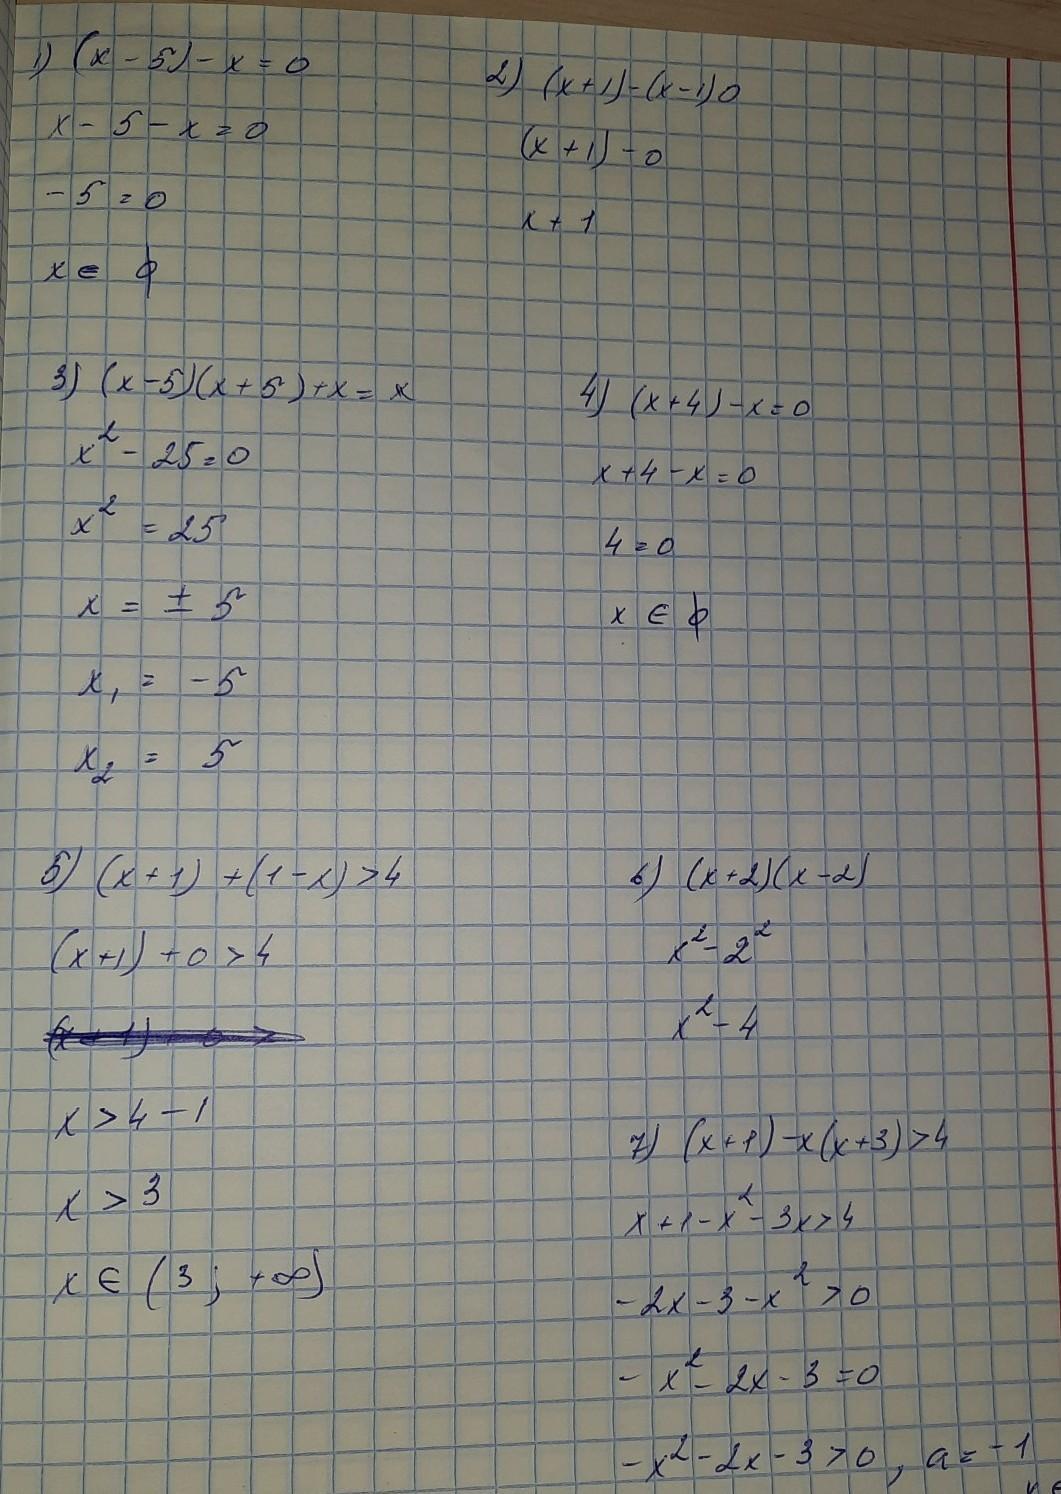 1) (x - 5) - x = 0
x - 5 - x = 0
- 5 = 0
x ∈ ϕ
2) (x+1)-(x-1)0
(x+1)-0
x+1
3) (x-5)(x+5)+x = x
x² - 25 = 0
x² = 25
x = ± 5
x₁ = -5
x₂ = 5
4) (x+4)-x=0
x+4-x=0
4=0
x ∈ ϕ
5) (x+1) +(1-x)>4
(x+1)+0>4
x>4-1
x > 3
x ∈ (3; +∞)
6) (x+2)(x-2)
x²-2²
x²-4
7) (x+1)-x(x+3)>4
x+1-x²-3x>4
-2x-3-x²>0
-x²-2x-3=0
-x²-2x-3>0, a=-1